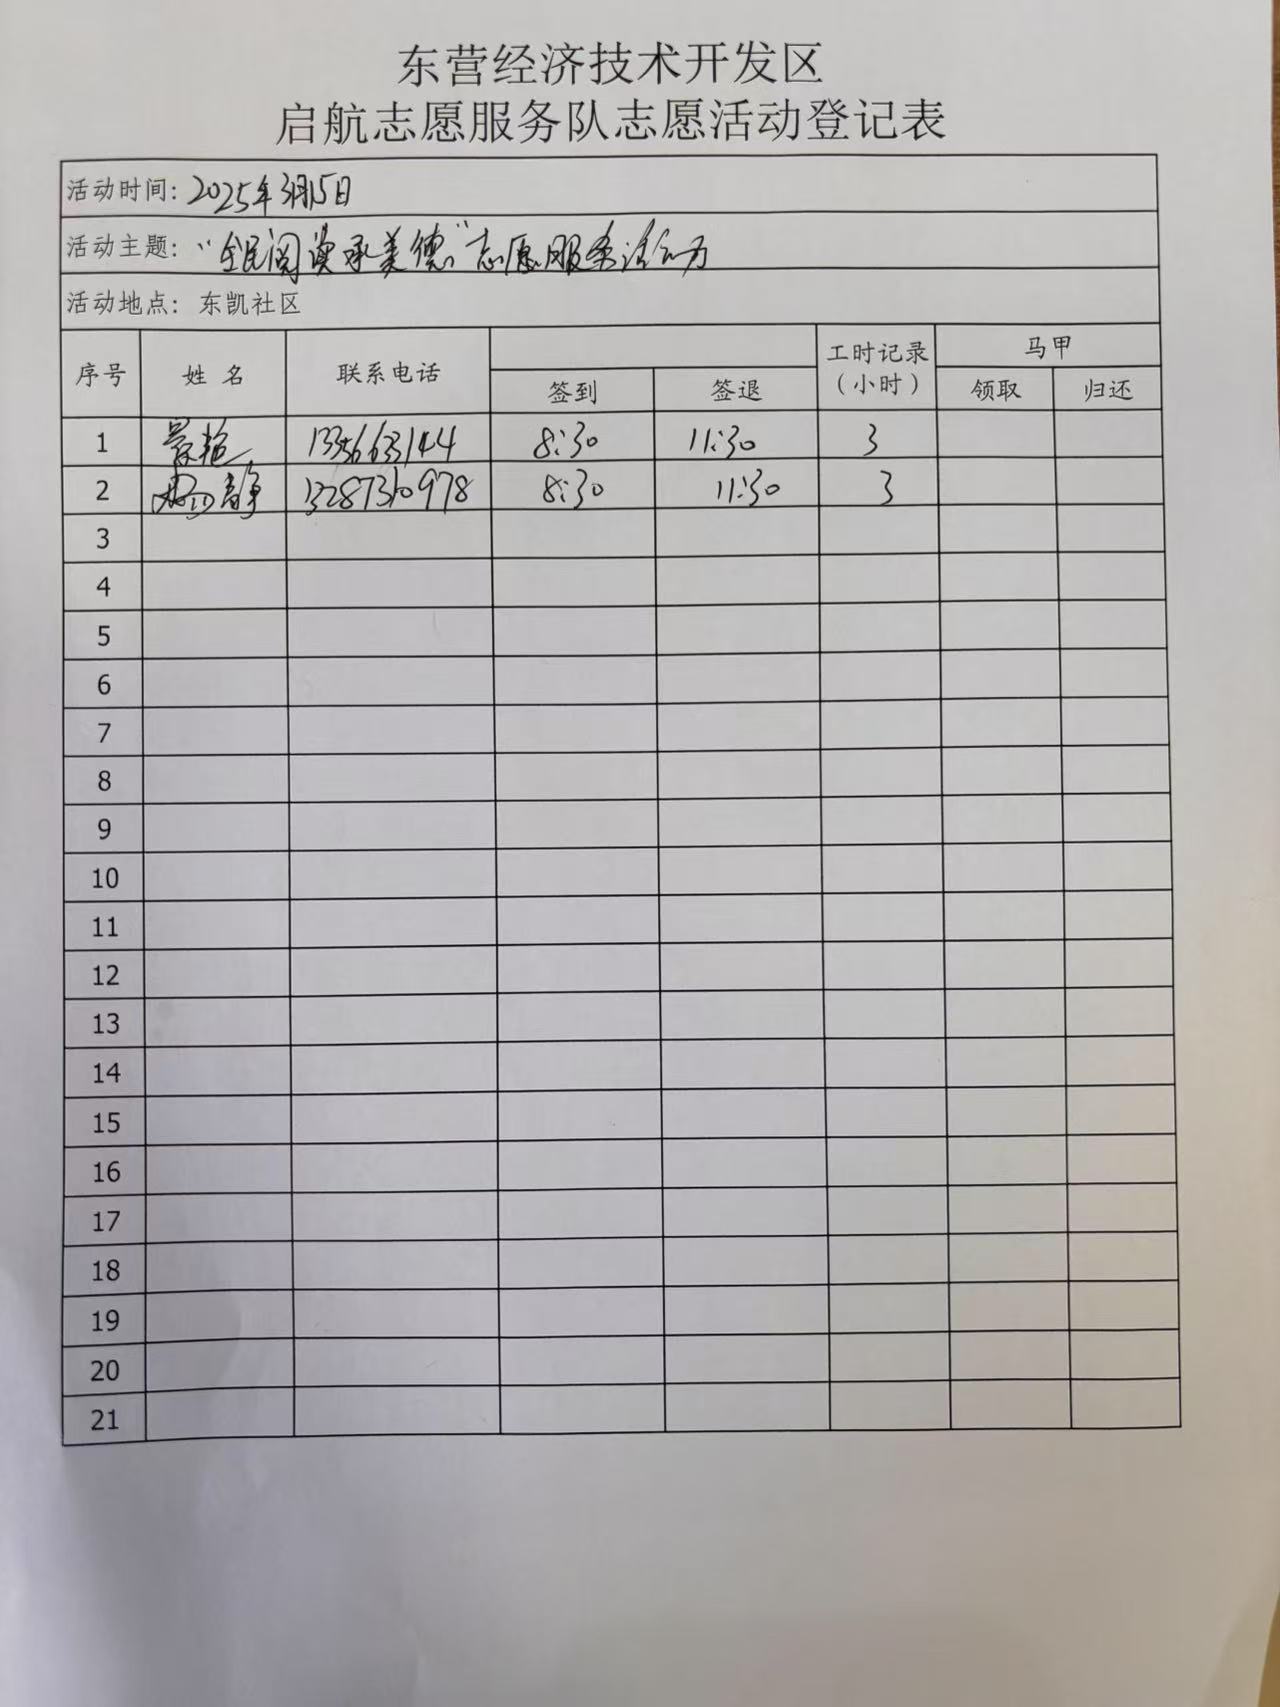 东营经济技术开发区
启航志愿服务队志愿活动登记表
活动时间: 2025年3月15日
活动主题: “全民阅读承美德”志愿服务活动
活动地点: 东凯社区
序号 姓 名 联系电话 签到 签退 工时记录(小时) 马甲 领取 归还
1 8:30 11:30 3
2 杨静 13287310978 8:30 11:30 3
3
4
5
6
7
8
9
10
11
12
13
14
15
16
17
18
19
20
21